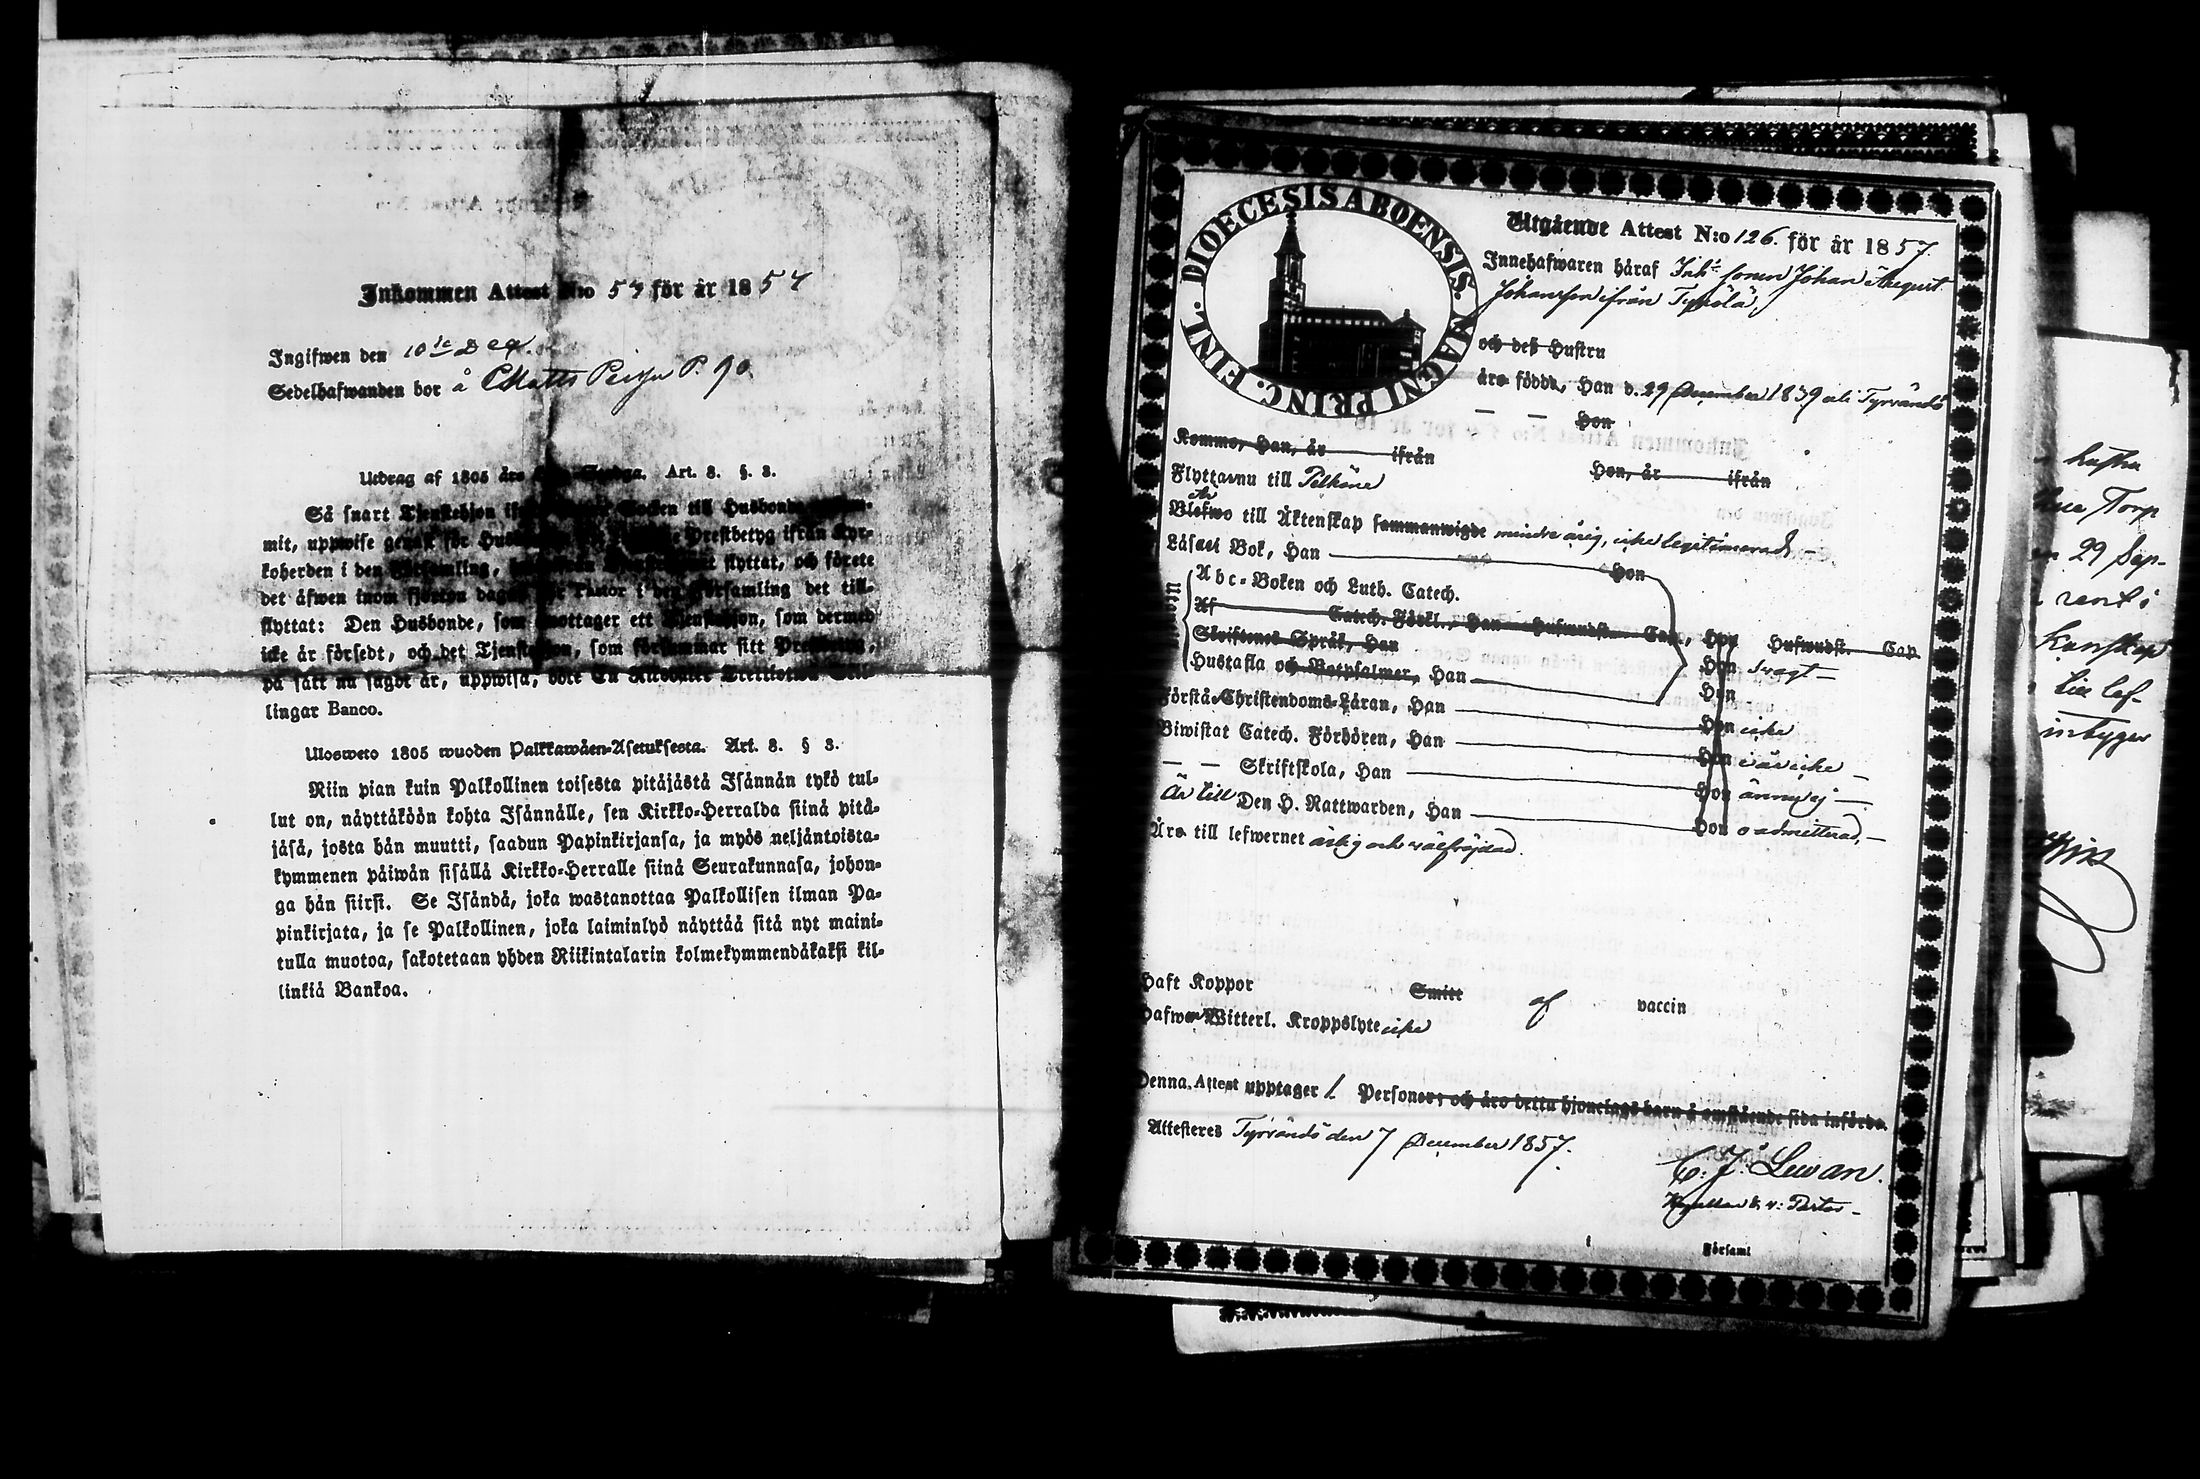 Inkommen Attest N:o 57 för år 1857
Ingifwen den 10de Dec.
Sedelhafwanden bor å Matts P. 90
Utdrag af 1805 års Art. 8. §. 3.
Så snart Tjenstehjon till Husbonde
mit, uppwise genast för Prestbetyg ifrån Kyr-
koherden i den församling, flyttat, och förete
det äfwen inom fjorton dagar för Pastor i den församling det till-
flyttat: Den Husbonde, som emottager ett Tjenstehjon, som dermed
icke är försedt, och det Tjenstehjon, som försummar sitt Prestbetyg,
på sätt nu sagdt är, uppwisa, böte En Riksdaler Trettiotwå Skil-
lingar Banco.
Ulosweto 1805 wuoden Palkkawäen-Asetuksesta. Art. 8. § 3.
Niin pian kuin Palkollinen toisesta pitäjästä Isännän tykö tul-
lut on, näyttäköön kohta Isännälle, sen Kirkko-Herralda siinä pitä-
jäsä, josta hän muutti, saadun Papinkirjansa, ja myös neljäntoista-
kymmenen päiwän sisällä Kirkko-Herralle siinä Seurakunnasa, johon-
ga hän siirsi. Se Isändä, joka wastanottaa Palkollisen ilman Pa-
pinkirjata, ja se Palkollinen, joka laiminlyö näyttää sitä nyt maini-
tulla muotoa, sakotetaan yhden Riikintalarin kolmekymmendäkaksi kil-
linkiä Bankoa.
DIOECESIS ABOENSIS. MAGNI PRINC. FINL.
Utgående Attest N:o 126. för år 1857.
Innehafwaren häraf Inh:s sonen Johan August
Johansson ifrån Tyrölä,
och deß Hustru
äro födde, Han d. 29 December 1839 uti Tyrvändö
— — Hon
Kommo, Han, år ifrån Hon, år ifrån
Flytta nu till Pelkäne
Är
Blefwo till Äktenskap sammanwigde minder årig, icke legitimerad, —
Läsa i Bok, Han Hon
Abc-Boken och Luth. Catech.
Af Catech. Förkl., Han Hufwudst. Cap, Hon Hufwudst. Cap
Skriftenes Språk, Han Hon svagt —
Hustafla och Botpsalmer, Han Hon
Förstå Christendoms-Läran, Han Hon icke
Biwistat Catech. Förhören, Han Hon i år icke —
— — Skriftskola, Han Hon ännu ej —
Är till Den H. Nattwarden, Han Hon oadmitterad, —
Äro till lefwernet ärlig och wälfräjdad.
Haft Koppor Smitt af vaccin
Hafwa Witterl. Kroppslyte icke
Denna Attest upptager 1 Personer; och äro detta hjonelags barn å omstående sida införde.
Attesteres Tyrvändö den 7 December 1857.
C. J. Lewan.
Kapellan & v: Pastor —
Församl
hustru
Torp
29 Sep-
rent i
Kunskap
till lef-
intygar